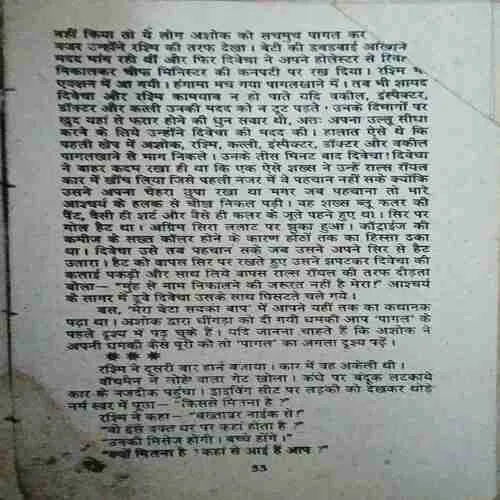 नहीं किया तो ये लोग अशोक को सचमुच पागल कर
नजर उन्होंने रश्मि की तरफ देखा। बेटी की डबडबाई आंखें
मदद मांग रही थीं और फिर दिवेचा ने अपने होलेस्टर से
निकालकर चीफ मिनिस्टर की कनपटी पर रख दिया। रश्मि भी
एक्शन में आ गयी। हंगामा मच गया पागलखाने में। तब भी शायद
दिवेचा और रश्मि कामयाब न हो पाते यदि वकील, इंस्पेक्टर,
डॉक्टर और कल्ली उनकी मदद को न टूट पड़ते। उनके दिमागों पर
खुद यहां से फरार होने की धुन सवार थी, अतः अपना उल्लू सीधा
करने के लिये उन्होंने दिवेचा की मदद की। हालात ऐसे थे कि
पहली खेप में अशोक, रश्मि, कल्ली, इंस्पेक्टर, डॉक्टर और वकील
पागलखाने से भाग निकले। उनके तीस मिनट बाद दिवेचा! दिवेचा
ने बाहर कदम रखा ही था कि एक ऐसे शख्स ने उन्हें राल्स रॉयल
कार में खींच लिया जिसे पहली नजर में वे पहचान नहीं सके क्योंकि
उसने अपना चेहरा छुपा रखा था मगर जब पहचाना तो मारे
आश्चर्य के हलक से चीख निकल पड़ी। वह शख्स ब्लू कलर की
पैंट, वैसी ही शर्ट और वैसे ही कलर के जूते पहने हुए था। सिर पर
गोल हैट था। अग्रिम सिरा ललाट पर झुका हुआ। कॉड्राईज की
कमीज के सख्त कॉलर होने के कारण होंठों तक का हिस्सा ढका
था। दिवेचा उसे तब पहचान सके जब उसने अपने सिर से हैट
उतारा। हैट को वापस सिर पर रखते हुए उसने झपटकर दिवेचा की
कलाई पकड़ी और साथ लिये वापस राल्स रॉयल की तरफ दौड़ता
बोला— "मुंह से नाम निकालने की जरूरत नहीं है मेरा!" आश्चर्य
के सागर में डूबे दिवेचा उसके साथ घिसटते चले गये।
बस, 'मेरा बेटा सबका बाप' में आपने यहीं तक का कथानक
पढ़ा था। अशोक द्वारा धींगड़ा को दी गयी धमकी आप 'पागल' के
पहले दृश्य में पढ़ चुके हैं। यदि जानना चाहते हैं कि अशोक ने
अपनी धमकी कैसे पूरी की तो 'पागल' का अगला दृश्य पढ़ें।
***
रश्मि ने दूसरी बार हार्न बजाया। कार में वह अकेली थी।
वॉचमैन ने लोहे वाला गेट खोला। कंधे पर बंदूक लटकाये
कार के नजदीक पहुंचा। ड्राइविंग सीट पर लड़की को देखकर थोड़े
नर्म स्वर में पूछा— "किससे मिलना है?"
रश्मि ने कहा— "बख्तावर नाईक से!"
"वो इस वक्त घर पर कहां होता है?"
"उनकी मिसेज होंगी। बच्चे होंगे।"
"क्यों मिलना है? कहां से आई हैं आप?"
53